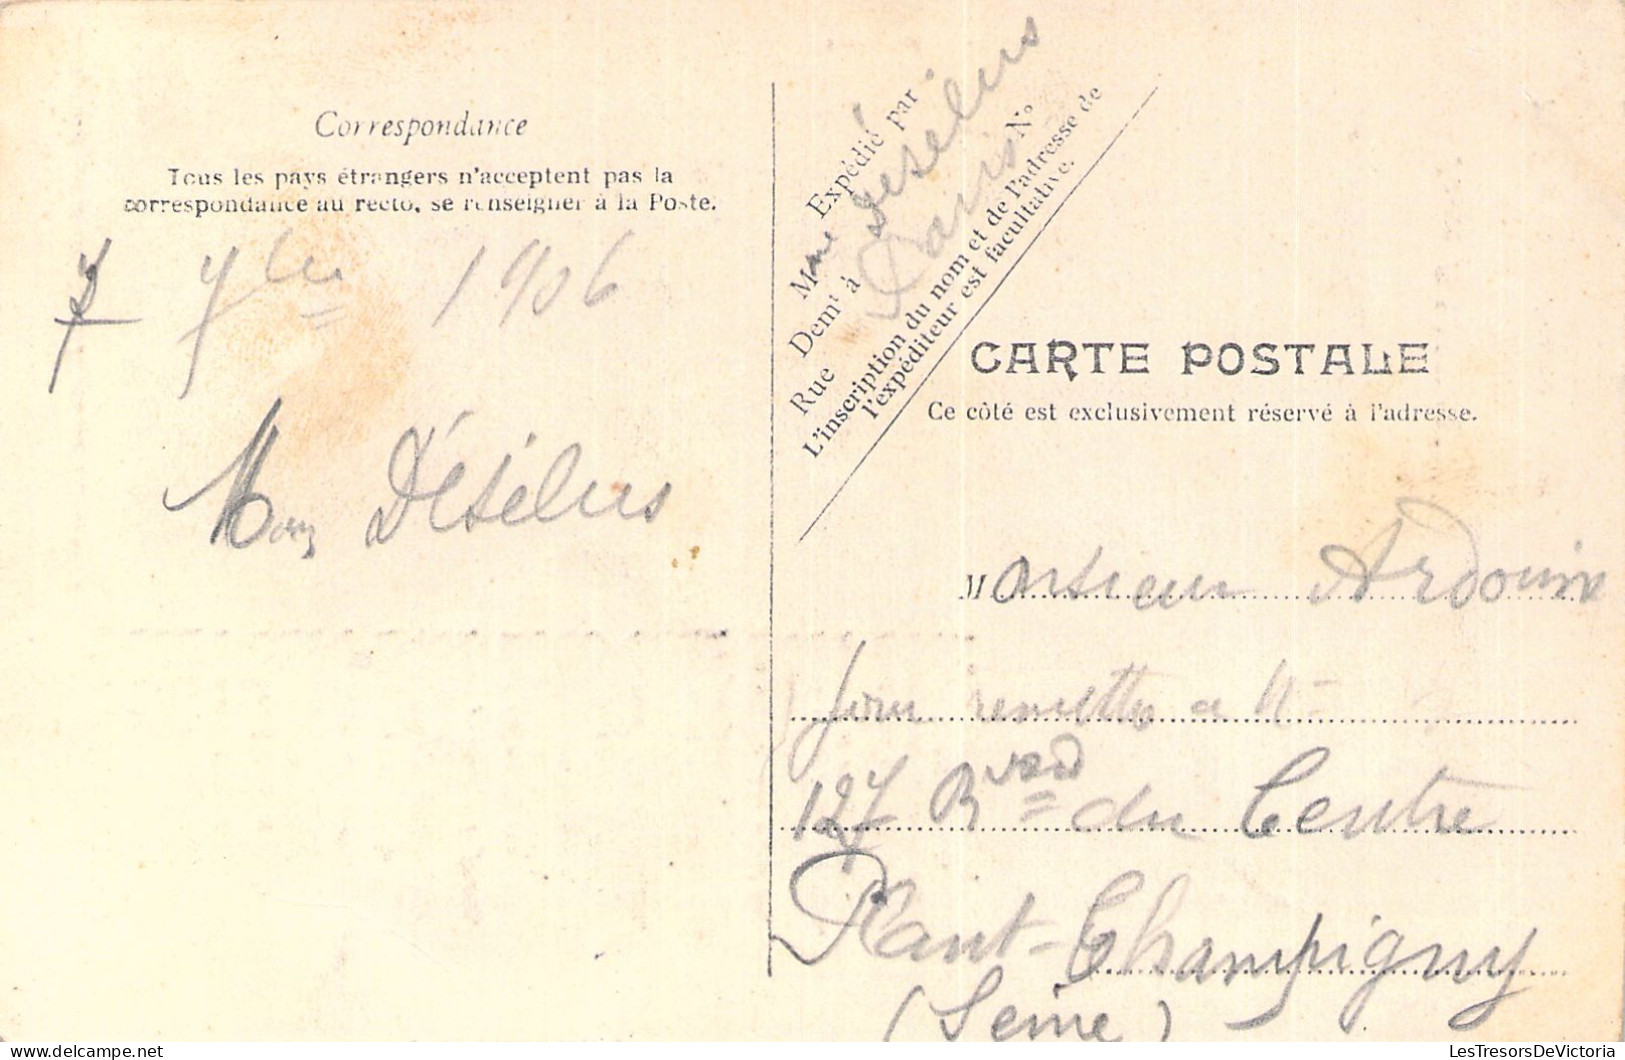 Correspondance
Tous les pays étrangers n'acceptent pas la
correspondance au recto, se renseigner à la Poste.
7 7bre 1906
Désélus
Expédié par
Mme Désélus
Demt à Paris
Rue N°
L'inscription du nom et de l'adresse de
l'expéditeur est facultative.
CARTE POSTALE
Ce côté est exclusivement réservé à l'adresse.
Monsieur Ardouin
pour remettre a
127 Bvard du Centre
Plant-Champigny
(Seine)
LesTresorsDeVictoria